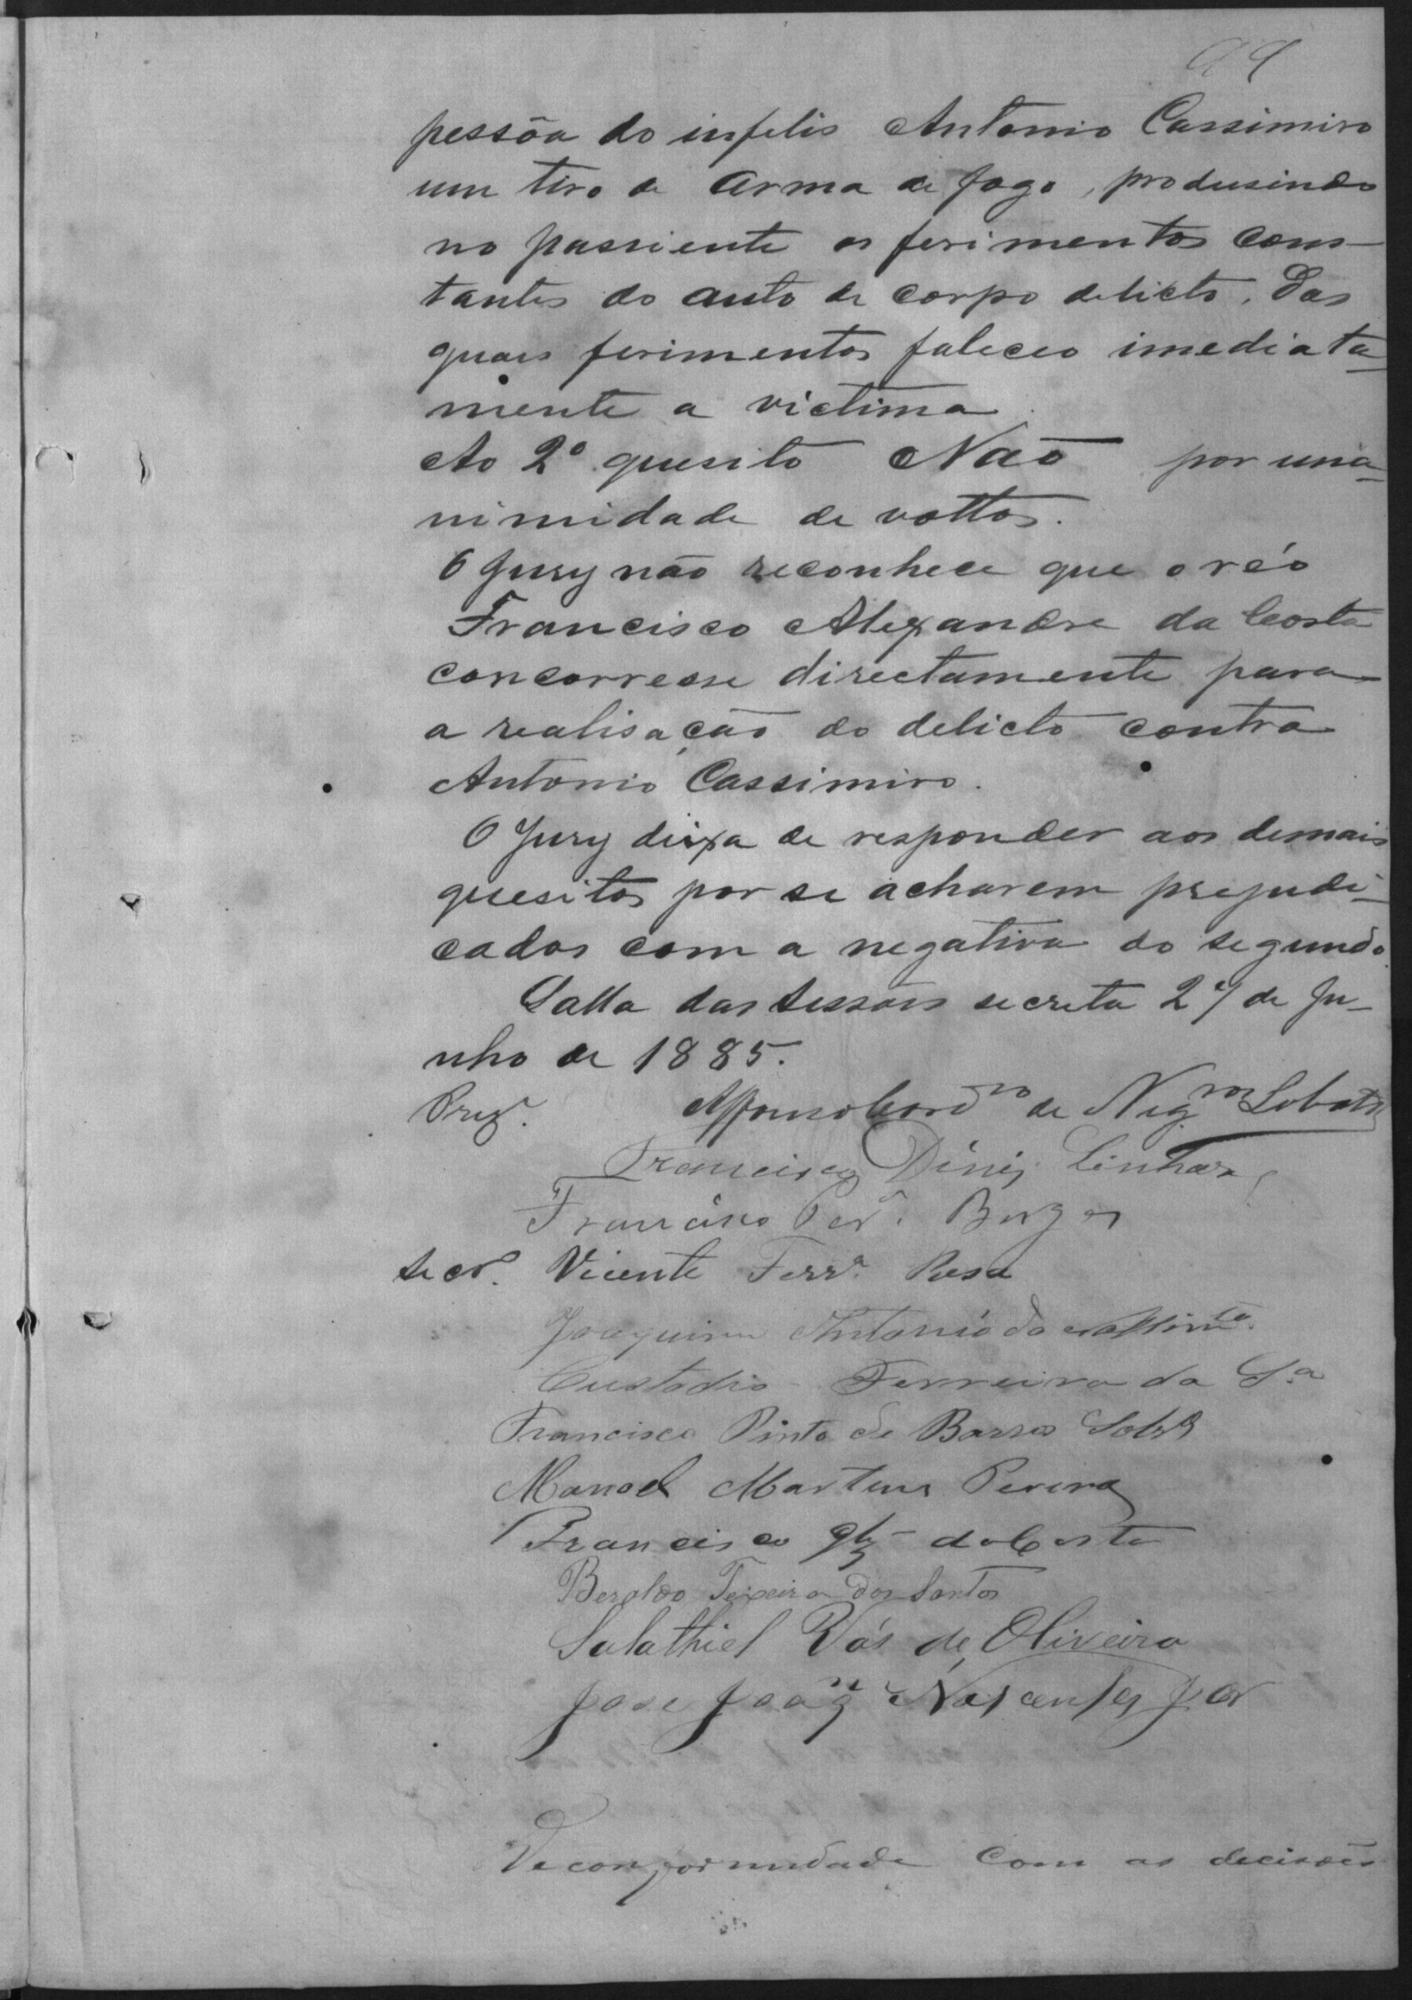 99
pessôa do infelis Antonio Cassimiro
um tiro de arma de fogo, produsindo
no passiente os ferimentos cons-
tantes do auto de corpo delicto. Das
quais ferimentos faleceo imediata-
mente a victima
Ao 2º quesito Não por una-
nimidade de vottos.
O Jury não reconhece que o réo
Francisco Alexandre da Costa
concorresse directamente para
a realisação do delicto contra
Antonio Cassimiro.
O Jury deixa de responder aos demais
quesitos por se acharem prejudi-
cados com a negativa do segundo.
Salla das sessões secreta 27 de Ju-
nho de 1885.
Prez.e Affonso Cord.ro de Neg.ros Lobato
Francisco Diniz Linhares
Francisco Per.a Borges
Secr. Vicente Ferr.a Rosa
Joaquim Antonio do
Custodio Ferreira da S.a
Francisco Pinto de Barros Sobr.
Manoel Martins Pereira
Francisco Glz da Costa
Beraldo Teixeira dos Santos
Salathiel Vás de Oliveira
Jose Joaq.m
De conformidade com as decisões